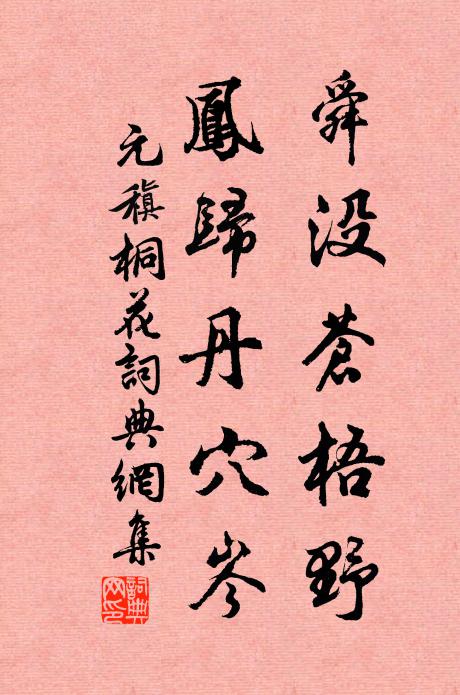 舜没蒼梧野
鳳歸丹穴岑
元稹桐花詞典網集
詞典網印